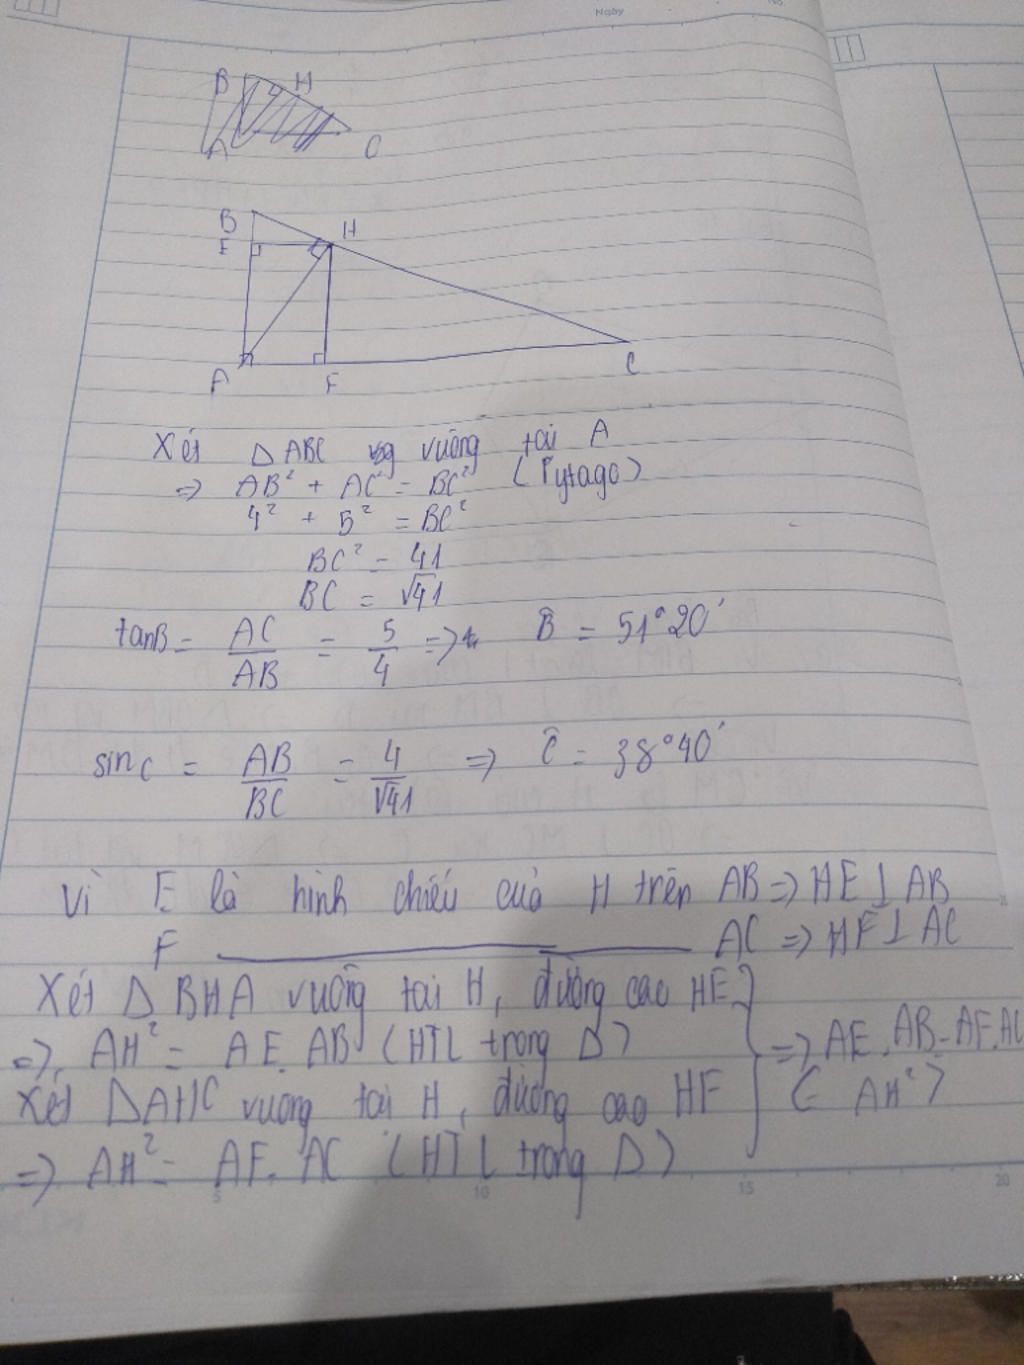 Ngày
No.
B H
A C
B
E H
A F C
Xét ΔABC vuông tại A
=> AB² + AC² = BC² (Pytago)
4² + 5² = BC²
BC² = 41
BC = √41
tanB = AC/AB = 5/4 => B̂ = 51°20'
sinC = AB/BC = 4/√41 => Ĉ = 38°40'
Vì E là hình chiếu của H trên AB => HE⊥AB
F ———— AC => HF⊥AC
Xét ΔBHA vuông tại H, đường cao HE
=> AH² = AE.AB (HTL trong Δ) } => AE.AB=AF.AC
Xét ΔAHC vuông tại H, đường cao HF (= AH²)
=> AH² = AF.AC (HTL trong Δ)
5 10 15 20